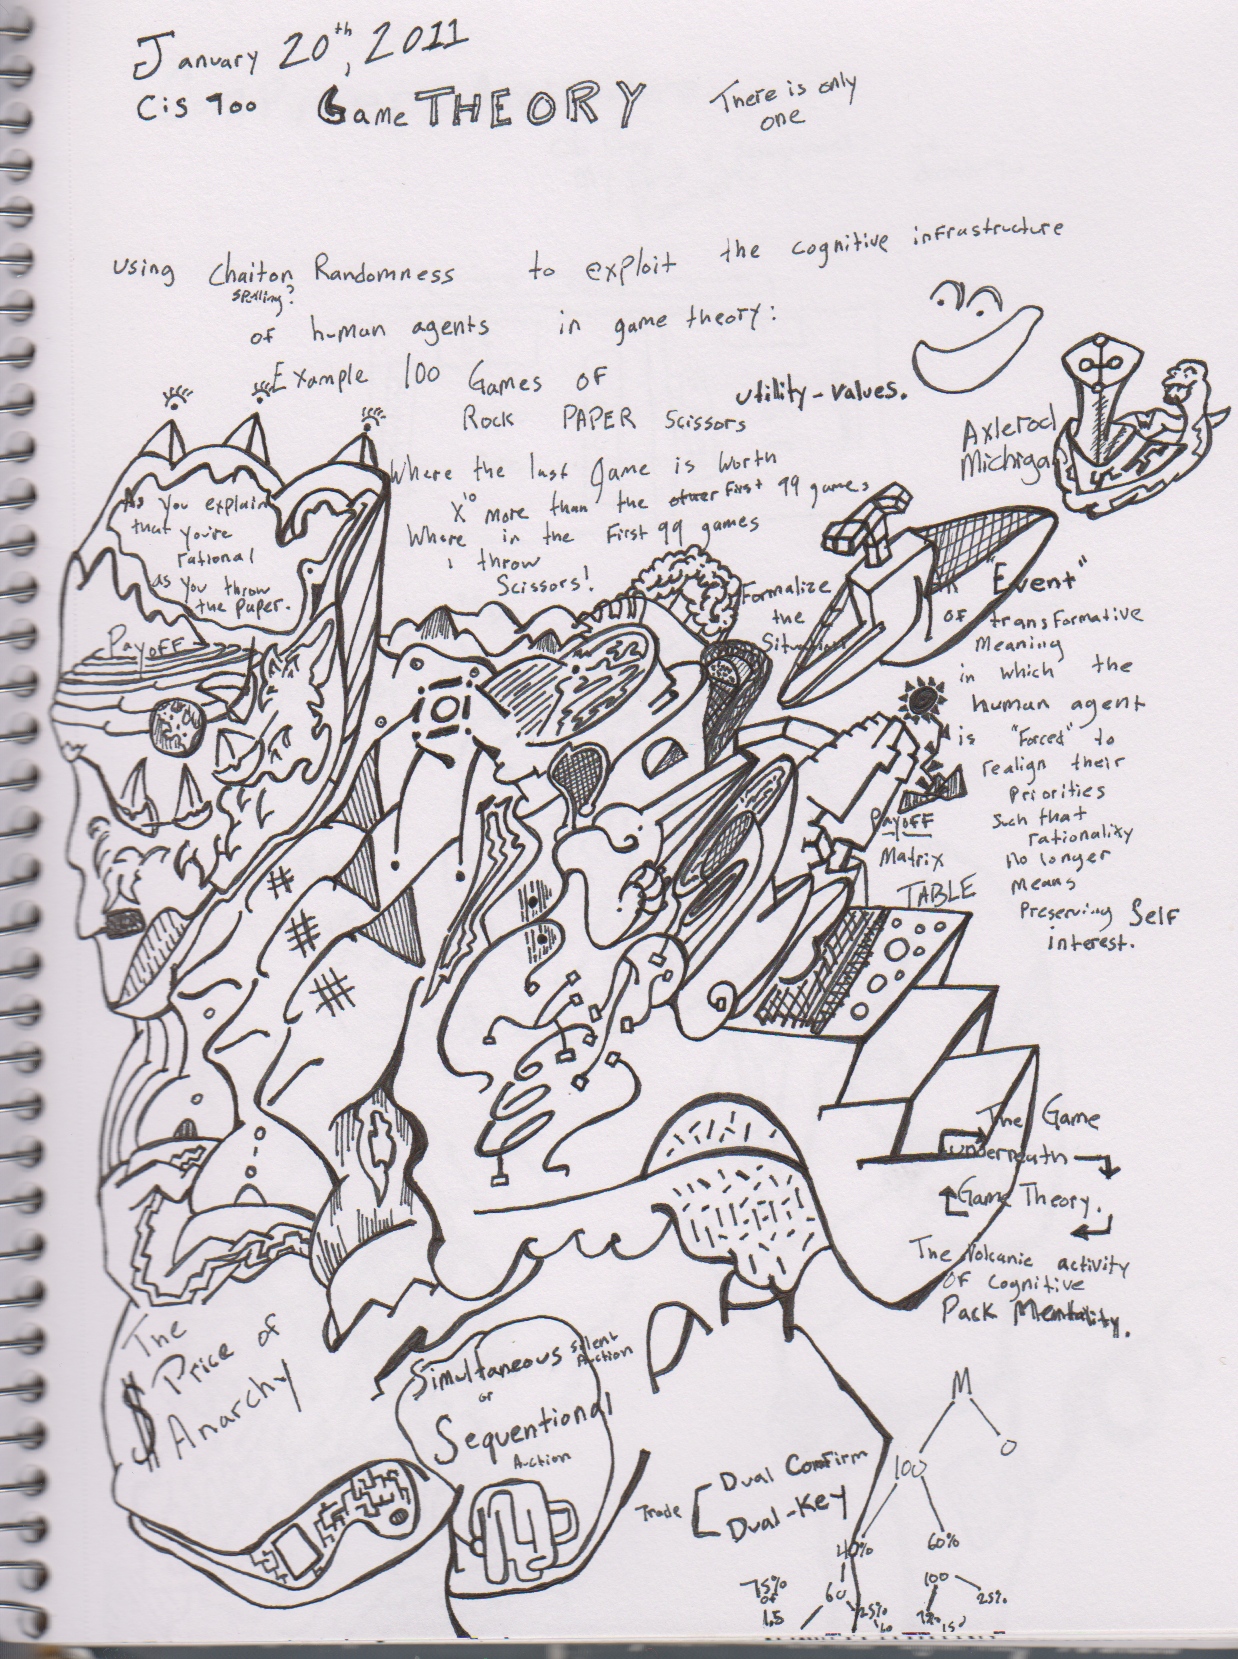 January 20th, 2011
CiS 900 Game THEORY
There is only
one
using Chaiton Randomness to exploit the cognitive infrastructure
spelling?
of human agents in game theory:
Example 100 Games OF
Rock PAPER Scissors
utility-values.
Where the last Game is worth
X10 more than the other First 99 games
Where in the First 99 games
i throw
Scissors!
Axlerod
Michigan
As you explain
that you're
rational
as you throw
the paper.
Payoff
Formalize
the
Situation
"Event"
OF transformative
Meaning
in which the
human agent
is "Forced" to
realign their
Priorities
Such that
rationality
no longer
means
Preserving Self
interest.
Payoff
Matrix
TABLE
The Game
underneath
Game Theory.
The Volcanic activity
OF Cognitive
Pack Mentality.
The
Price of
$ Anarchy
Simultaneous Silent
Auction
or
Sequentional
Auction
Trade [ Dual Comfirm
Dual-Key
M
100 0
40% 60%
75%
of
1.5
60 25%
60
100 25%